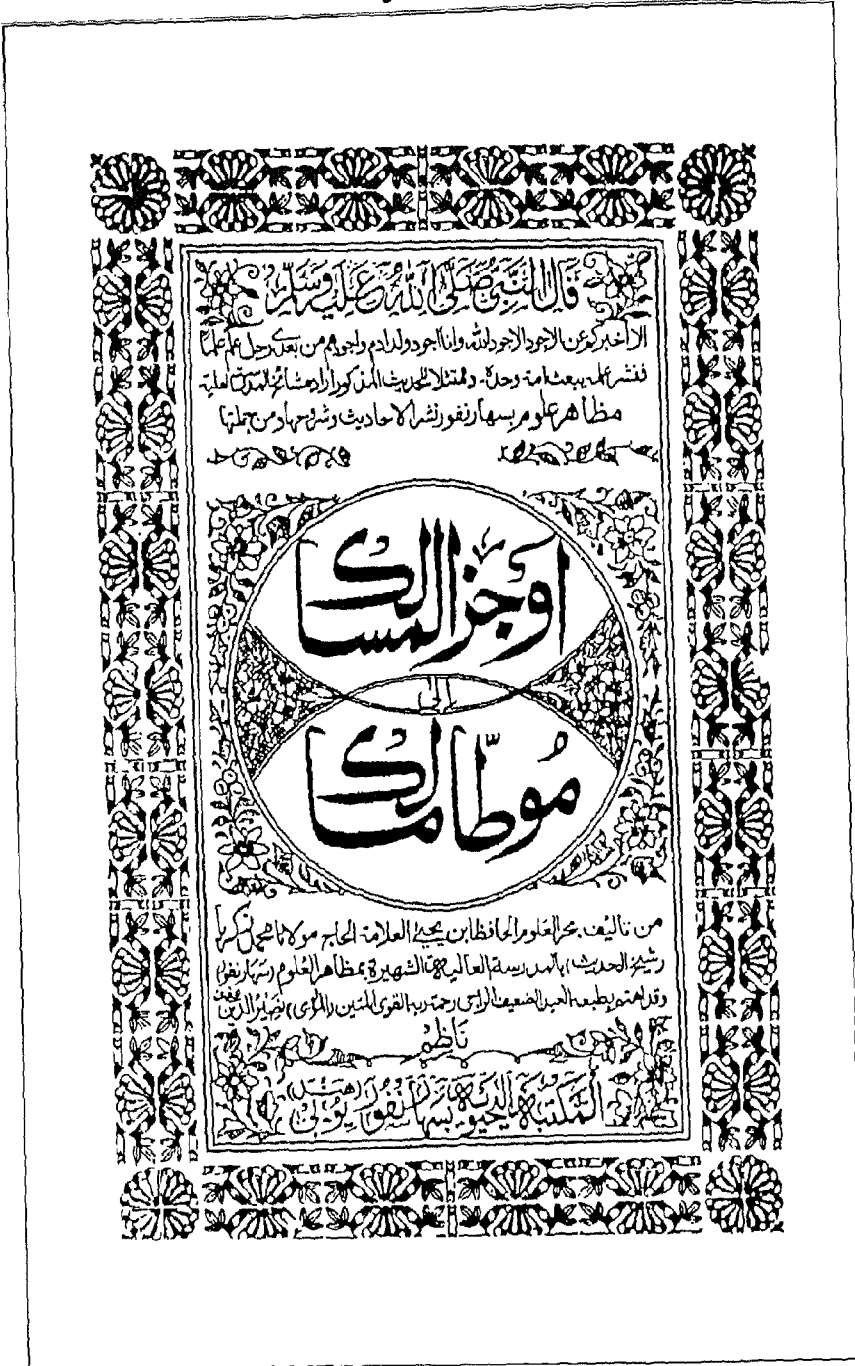 قَالَ النَّبِيُّ صَلَّى اللهُ عَلَيْهِ وَسَلَّمَ
الا اخبركم عن الاجود الاجود الله وانا اجود ولد ادم واجودهم من بعدى رجل علم علما
فنشر علمه يبعث امة وحده. وممتثلا للحديث المذكور اراد مشائخ المدرسة العالية
مظاهر علوم بسهارنفور نشر الاحاديث وشروحها ومن جملتها
اوجز المسالك
إلى
مُوطّا مالك
من تاليف بحر العلوم الحافظ ابن يحيى العلامة الحاج مولانا محمد زكريا
(شيخ الحديث) بالمدرسة العالية الشهيرة بمظاهر العلوم (سهارنفور)
وقد اهتم بطبعه العبد الضعيف الراجى رحمة ربه القوى المتين نصير الدين
نَاظِمُ
المكتبة اليحيوية بسهارنفور يوبي